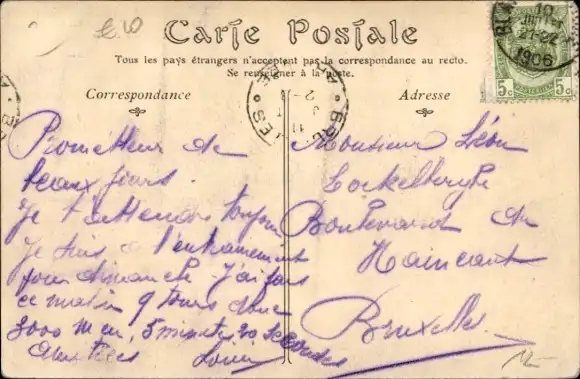 Carte Postale
Tous les pays étrangers n'acceptent pas la correspondance au recto.
Se renseigner à la poste.
Correspondance
Adresse
5c 5c
10
21-22
1906
Prometteur de
beaux jours.
Je t'attendrai toujours
Je suis à l'entrainement
pour dimanche j'ai fais
ce matin 9 tours donc
3000 m en 5 minutes 20 secondes
Louis
Monsieur Léon
Boulevard du
Hainaut
Bruxelles